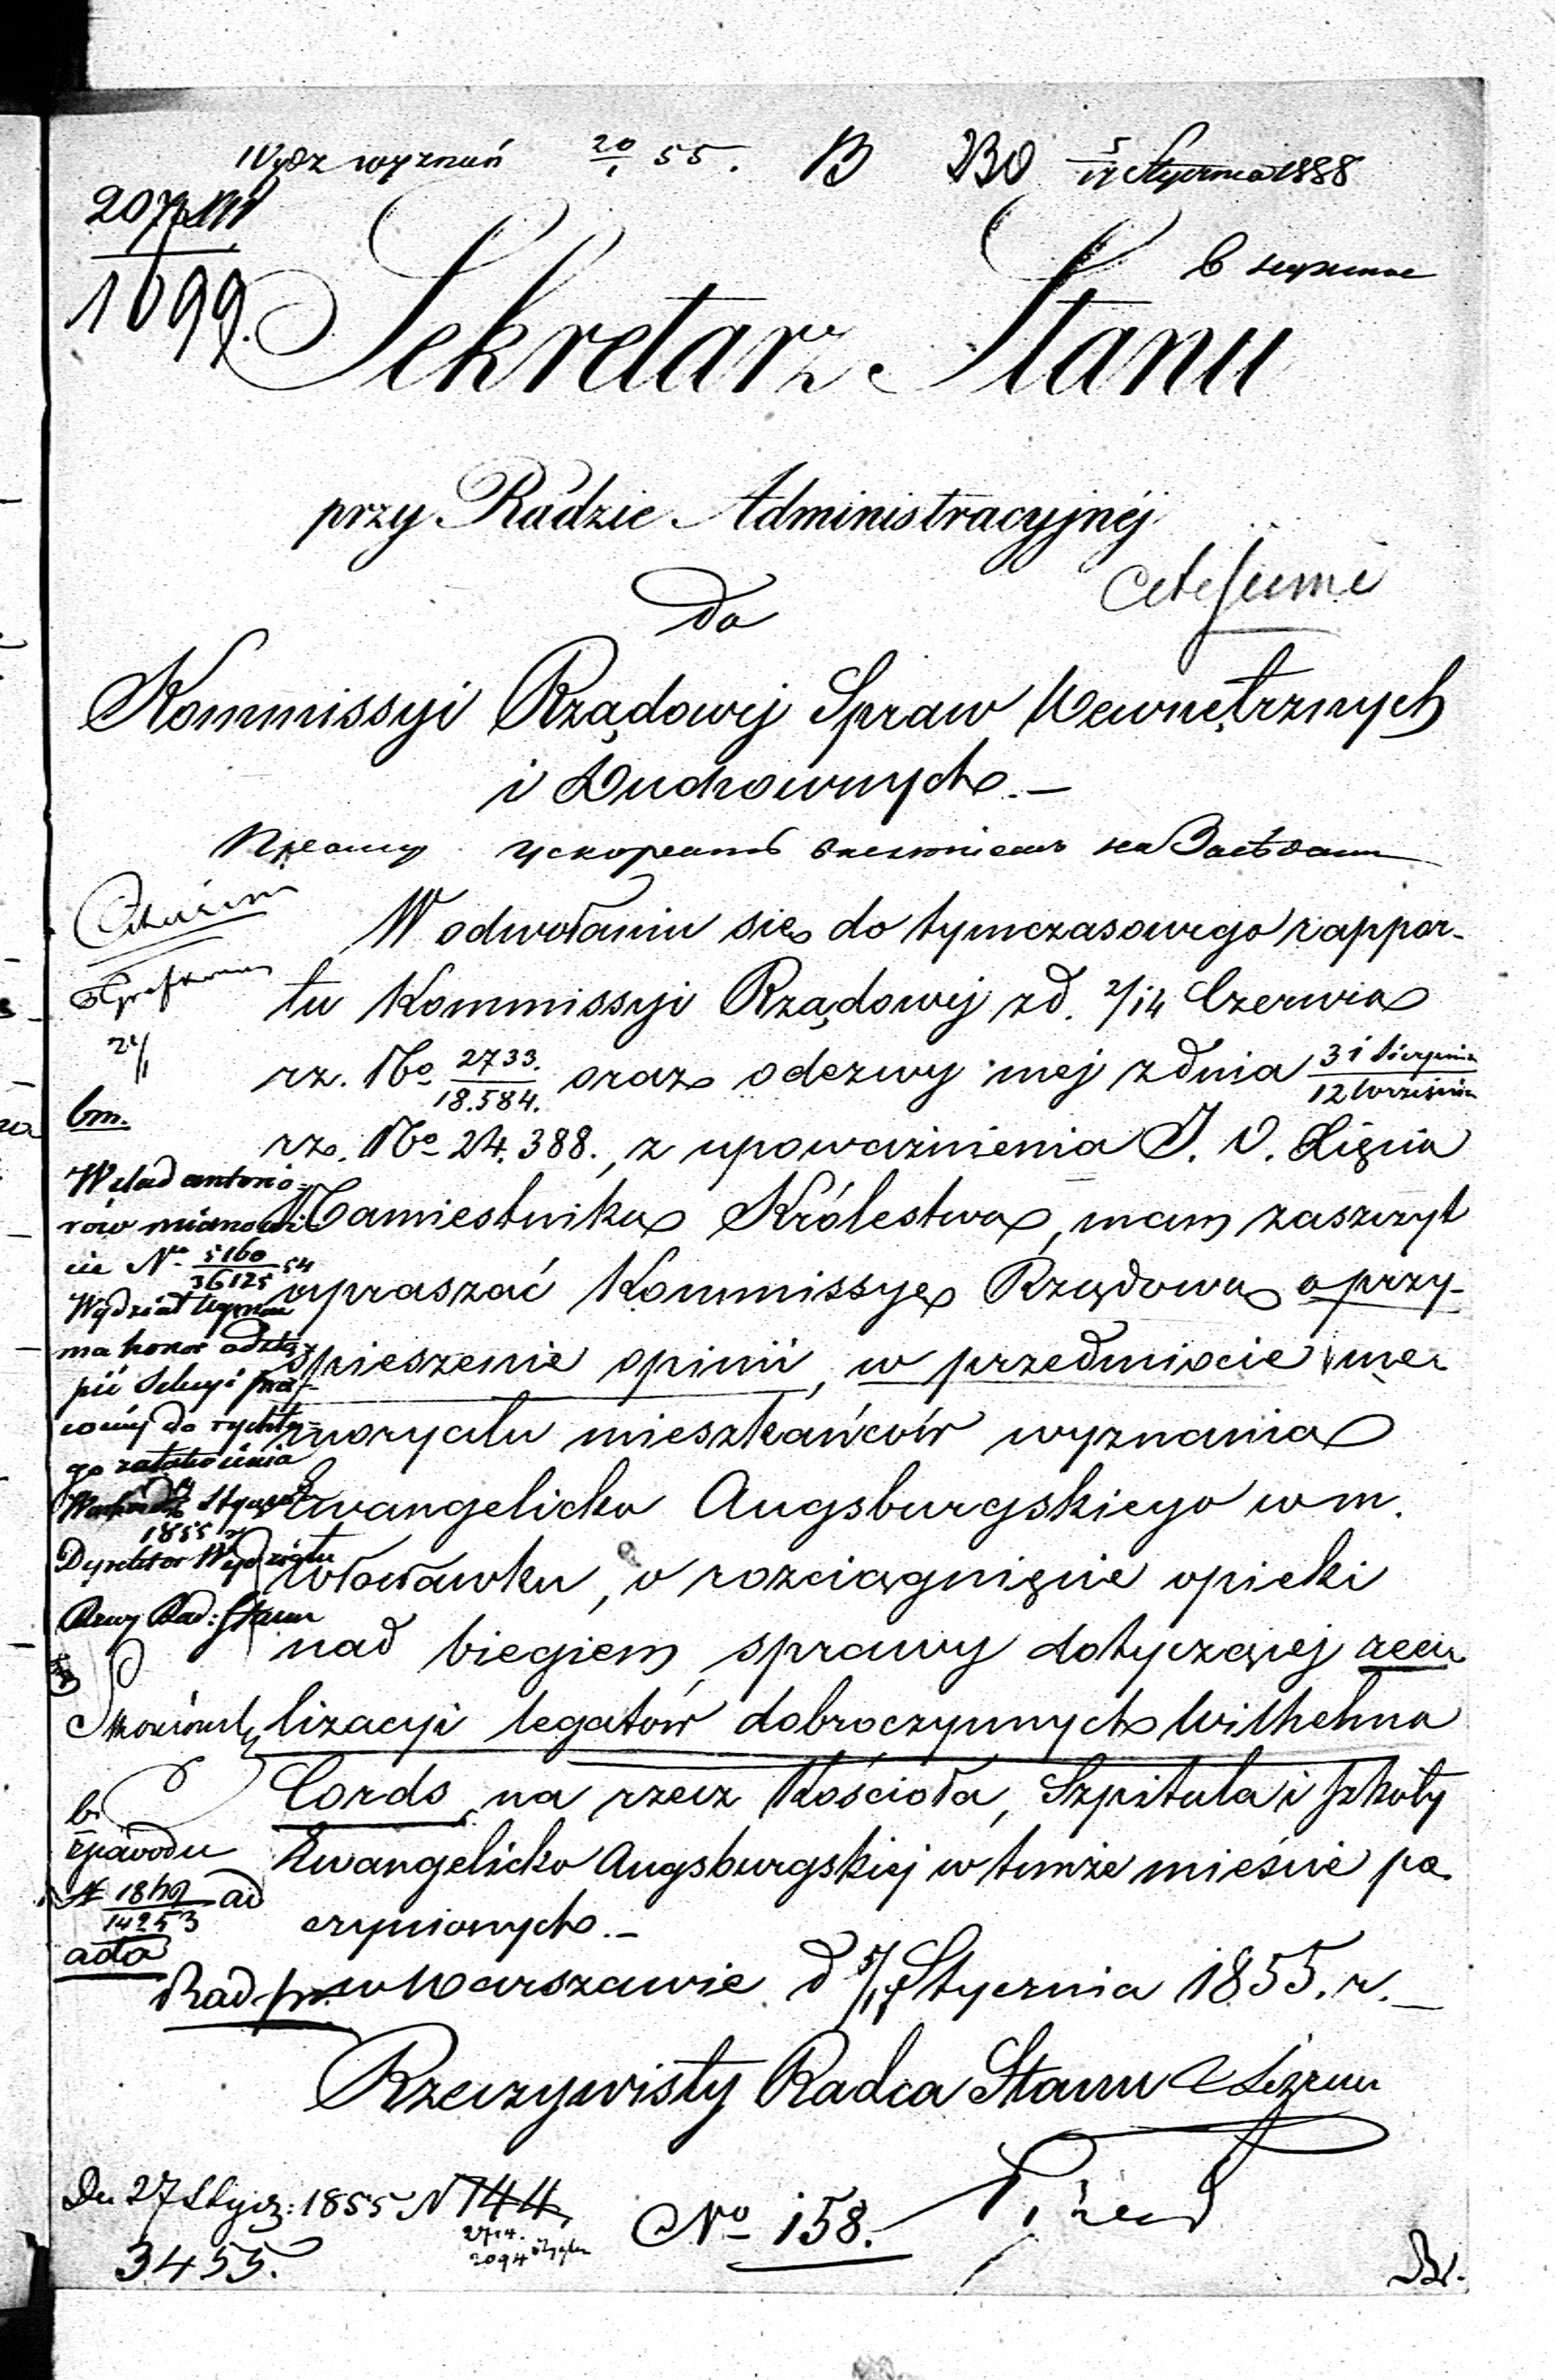 Wydz wyznań 20/1 55. B
5/17 Stycznia 1855
1099.
Sekretarz Stanu
przy Radzie Administracyjnéj
do
Kommissyi Rządowej Spraw Wewnętrznych
i Duchownych.—
W odwołaniu się do tymczasowego rappor-
tu Kommissyi Rządowej z d. 2/14 Czerwca
r.z. No 2733./18.584. oraz odezwy mej z dnia 31 Sierpnia/12 Września
r.z. No 24.388., z upoważnienia J. O. Xięcia
Namiestnika Królestwa, mam zaszczyt
upraszać Kommissyę Rządową o przy-
spieszenie opinii, w przedmiocie me-
moryału mieszkańców wyznania
Ewangelicko Augsburgskiego w m.
Włocławku, o rozciągnięcie opieki
nad biegiem sprawy dotyczącej rea-
lizacyi legatów dobroczynnych Wilhelma
Cords, na rzecz Kościoła, Szpitala i Szkoły
Ewangelicko Augsburgskiej w temże mieście po-
czynionych.—
w Warszawie d 5/17 Stycznia 1855. r.—
Rzeczywisty Radca Stanu
No 158.
bm.
Wślad anterio-
rów mianowi
cie No 5160/36125 54
Wydział Wyznań
ma honor odstą-
pić Sekcyi
do rychłe-
go załatwienia
Stycznia
1855 r
Dyrektor Wydziału
Rzecz Rad: Stanu
z powodu
N 1849/14253 ad
acta
Rad
Dn 27 Stycz: 1855 N 144
2714.
2094
3455.